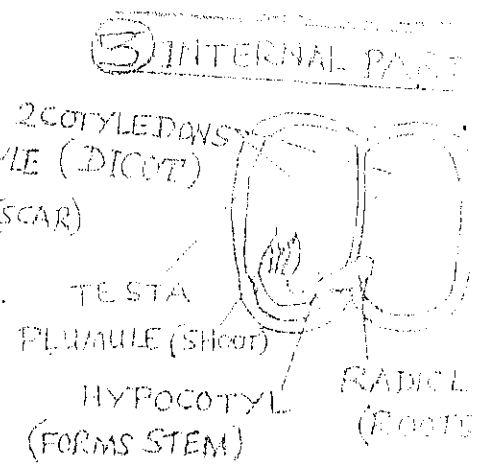 3 INTERNAL PART
2 COTYLEDONS
YLE (DICOT)
(SCAR)
TESTA
PLUMULE (SHOOT)
HYPOCOTYL
(FORMS STEM)
RADICL
(ROOTS